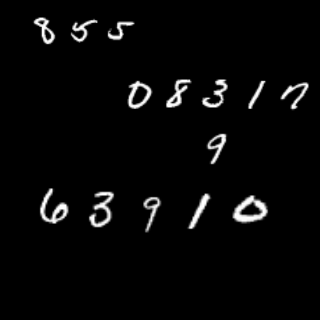 855
08317
9
63910